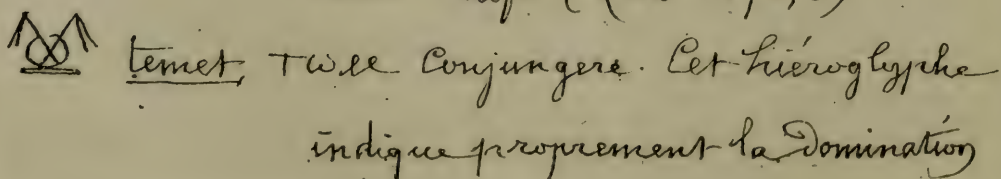 temet, ⲧⲱⲙ Conjungere. Cet hiéroglyphe
indique proprement la Domination